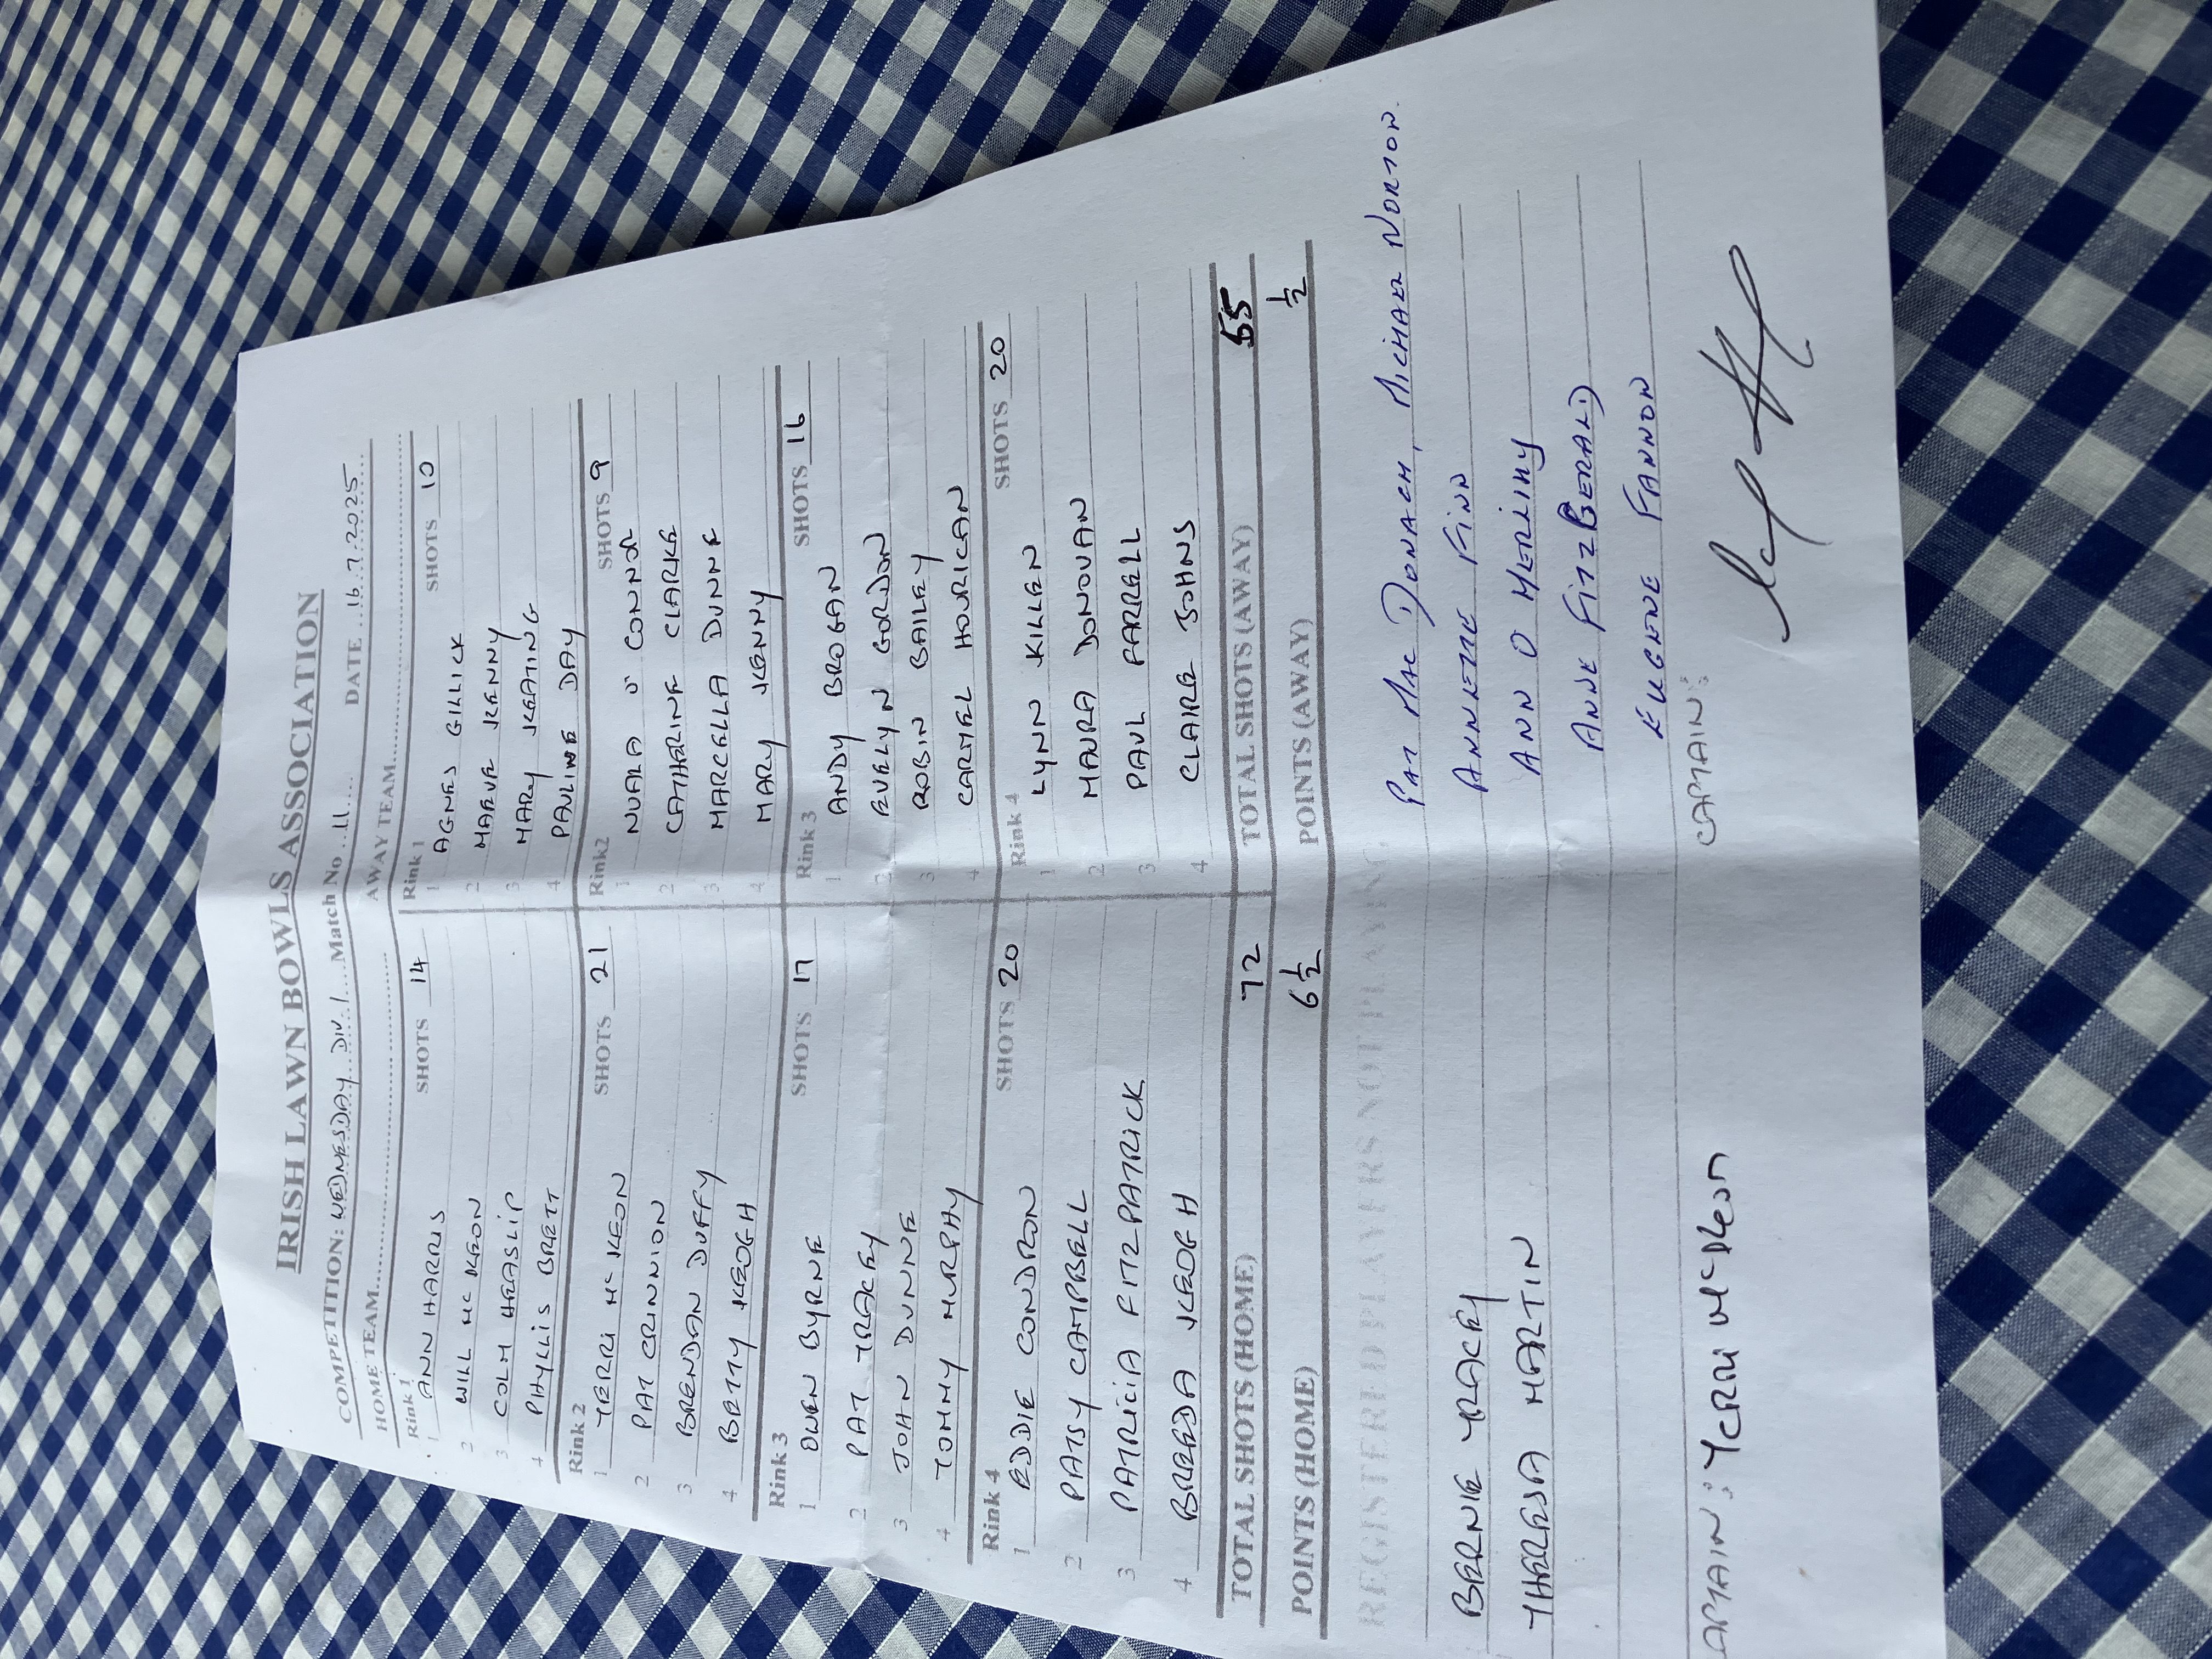 IRISH LAWN BOWLS ASSOCIATION
COMPETITION: WEDNESDAY DIV 1 Match No 11 DATE 16.7.2025
HOME TEAM AWAY TEAM
Rink 1 SHOTS 14 Rink 1 SHOTS 10
1 ANN HARRIS 1 AGNES GILLICK
2 WILL Mc KEON 2 MAEVE KENNY
3 COLM HEASLIP 3 MARY KEATING
4 PHYLLIS BRETT 4 PAULINE DAY
Rink 2 SHOTS 21 Rink2 SHOTS 9
1 TERRI Mc KEON 1 NUALA O' CONNOR
2 PAT CRINNION 2 CATHERINE CLARKE
3 BRENDAN DUFFY 3 MARCELLA DUNNE
4 BETTY KEOGH 4 MARY KENNY
Rink 3 SHOTS 17 Rink 3 SHOTS 16
1 OWEN BYRNE 1 ANDY BROGAN
2 PAT TRACEY 2 EVELYN GORDON
3 JOHN DUNNE 3 ROBIN BAILEY
4 TOMMY MURPHY 4 CARMEL HOURICAN
Rink 4 SHOTS 20 Rink 4 SHOTS 20
1 EDDIE CONDRON 1 LYNN KILLEN
2 PATSY CAMPBELL 2 MAURA DONOVAN
3 PATRICIA FITZPATRICK 3 PAUL FARRELL
4 BREEDA KEOGH 4 CLAIRE JOHNS
TOTAL SHOTS (HOME) 72 TOTAL SHOTS (AWAY) 55
POINTS (HOME) 6 1/2 POINTS (AWAY) 1/2
REGISTERED PLAYERS NOT PLAYING
PAT MAC DONACH, MICHAEL NORTON.
BERNIE TRACEY ANNETTE FINN
THERESA MARTIN ANN O HERLIHY
ANNE FITZGERALD
EUGENE FANNON
APTAIN: Terri McKeon CAPTAIN: